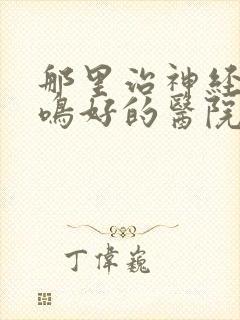 那里治神经
鸣好的醫院
丁偉巍